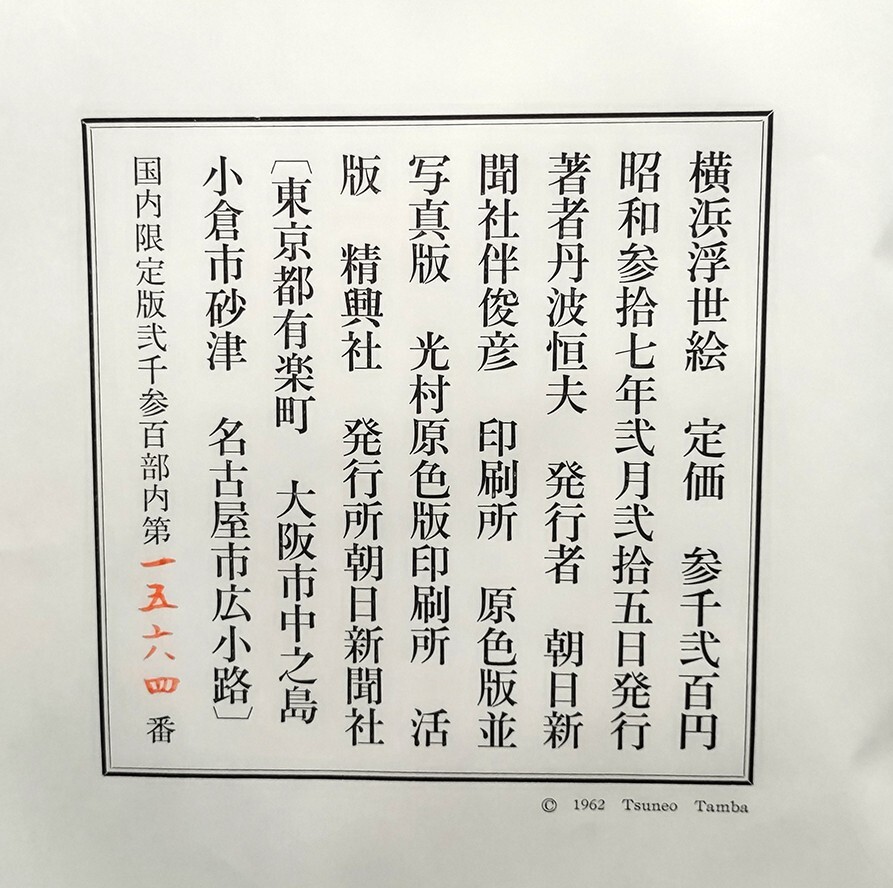 横浜浮世絵　定価　参千弐百円
昭和参拾七年弐月弐拾五日発行
著者丹波恒夫　発行者　朝日新
聞社伴俊彦　印刷所　原色版並
写真版　光村原色版印刷所　活
版　精興社　発行所朝日新聞社
〔東京都有楽町　大阪市中之島
小倉市砂津　名古屋市広小路〕
国内限定版弐千参百部内第一五六四番
© 1962 Tsuneo Tamba